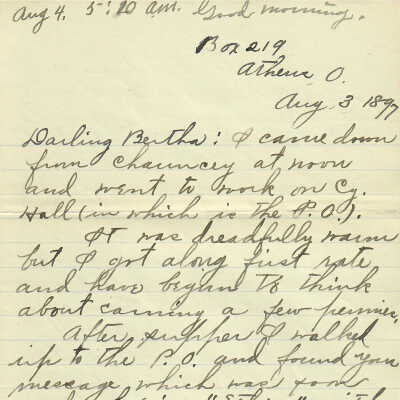 Aug 4. 5:10 a.m. Good morning.
Box 219
Athens O.
Aug 3 1897
Darling Bertha: I came down
from Chauncey at noon
and went to work on Cy.
Hall (in which is the P.O.).
It was dreadfully warm
but I got along first rate
and have begun to think
about earning a few pennies.
After supper I walked
up to the P.O. and found your
message which was soon